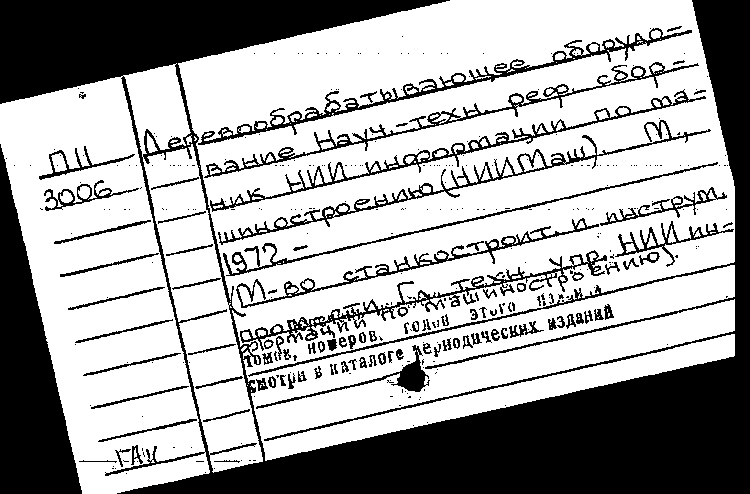 П11
3006
Деревообрабатывающее оборудо-
вание. Науч.-техн. реф. сбор-
ник НИИ информации по ма-
шиностроению (НИИМаш). М.,
1972.-
(М-во станкостроит. и инструм.
пром-сти. Гл. техн. упр. НИИ ин-
формации по машиностроению).
томов, номеров, годов этого издания
смотри в каталоге периодических изданий
ГАК